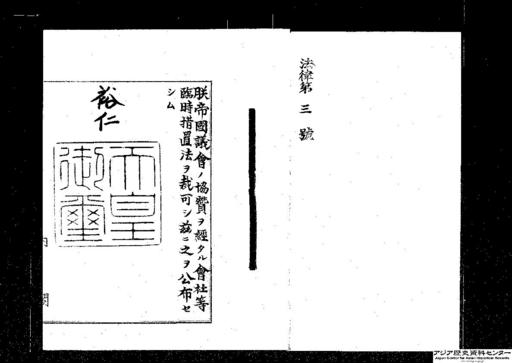 法律第三號
朕帝國議會ノ協贊ヲ經タル會社等
臨時措置法ヲ裁可シ茲ニ之ヲ公布セ
シム
裕仁
天皇
御璽
内閣
アジア歴史資料センター
Japan Center for Asian Historical Records